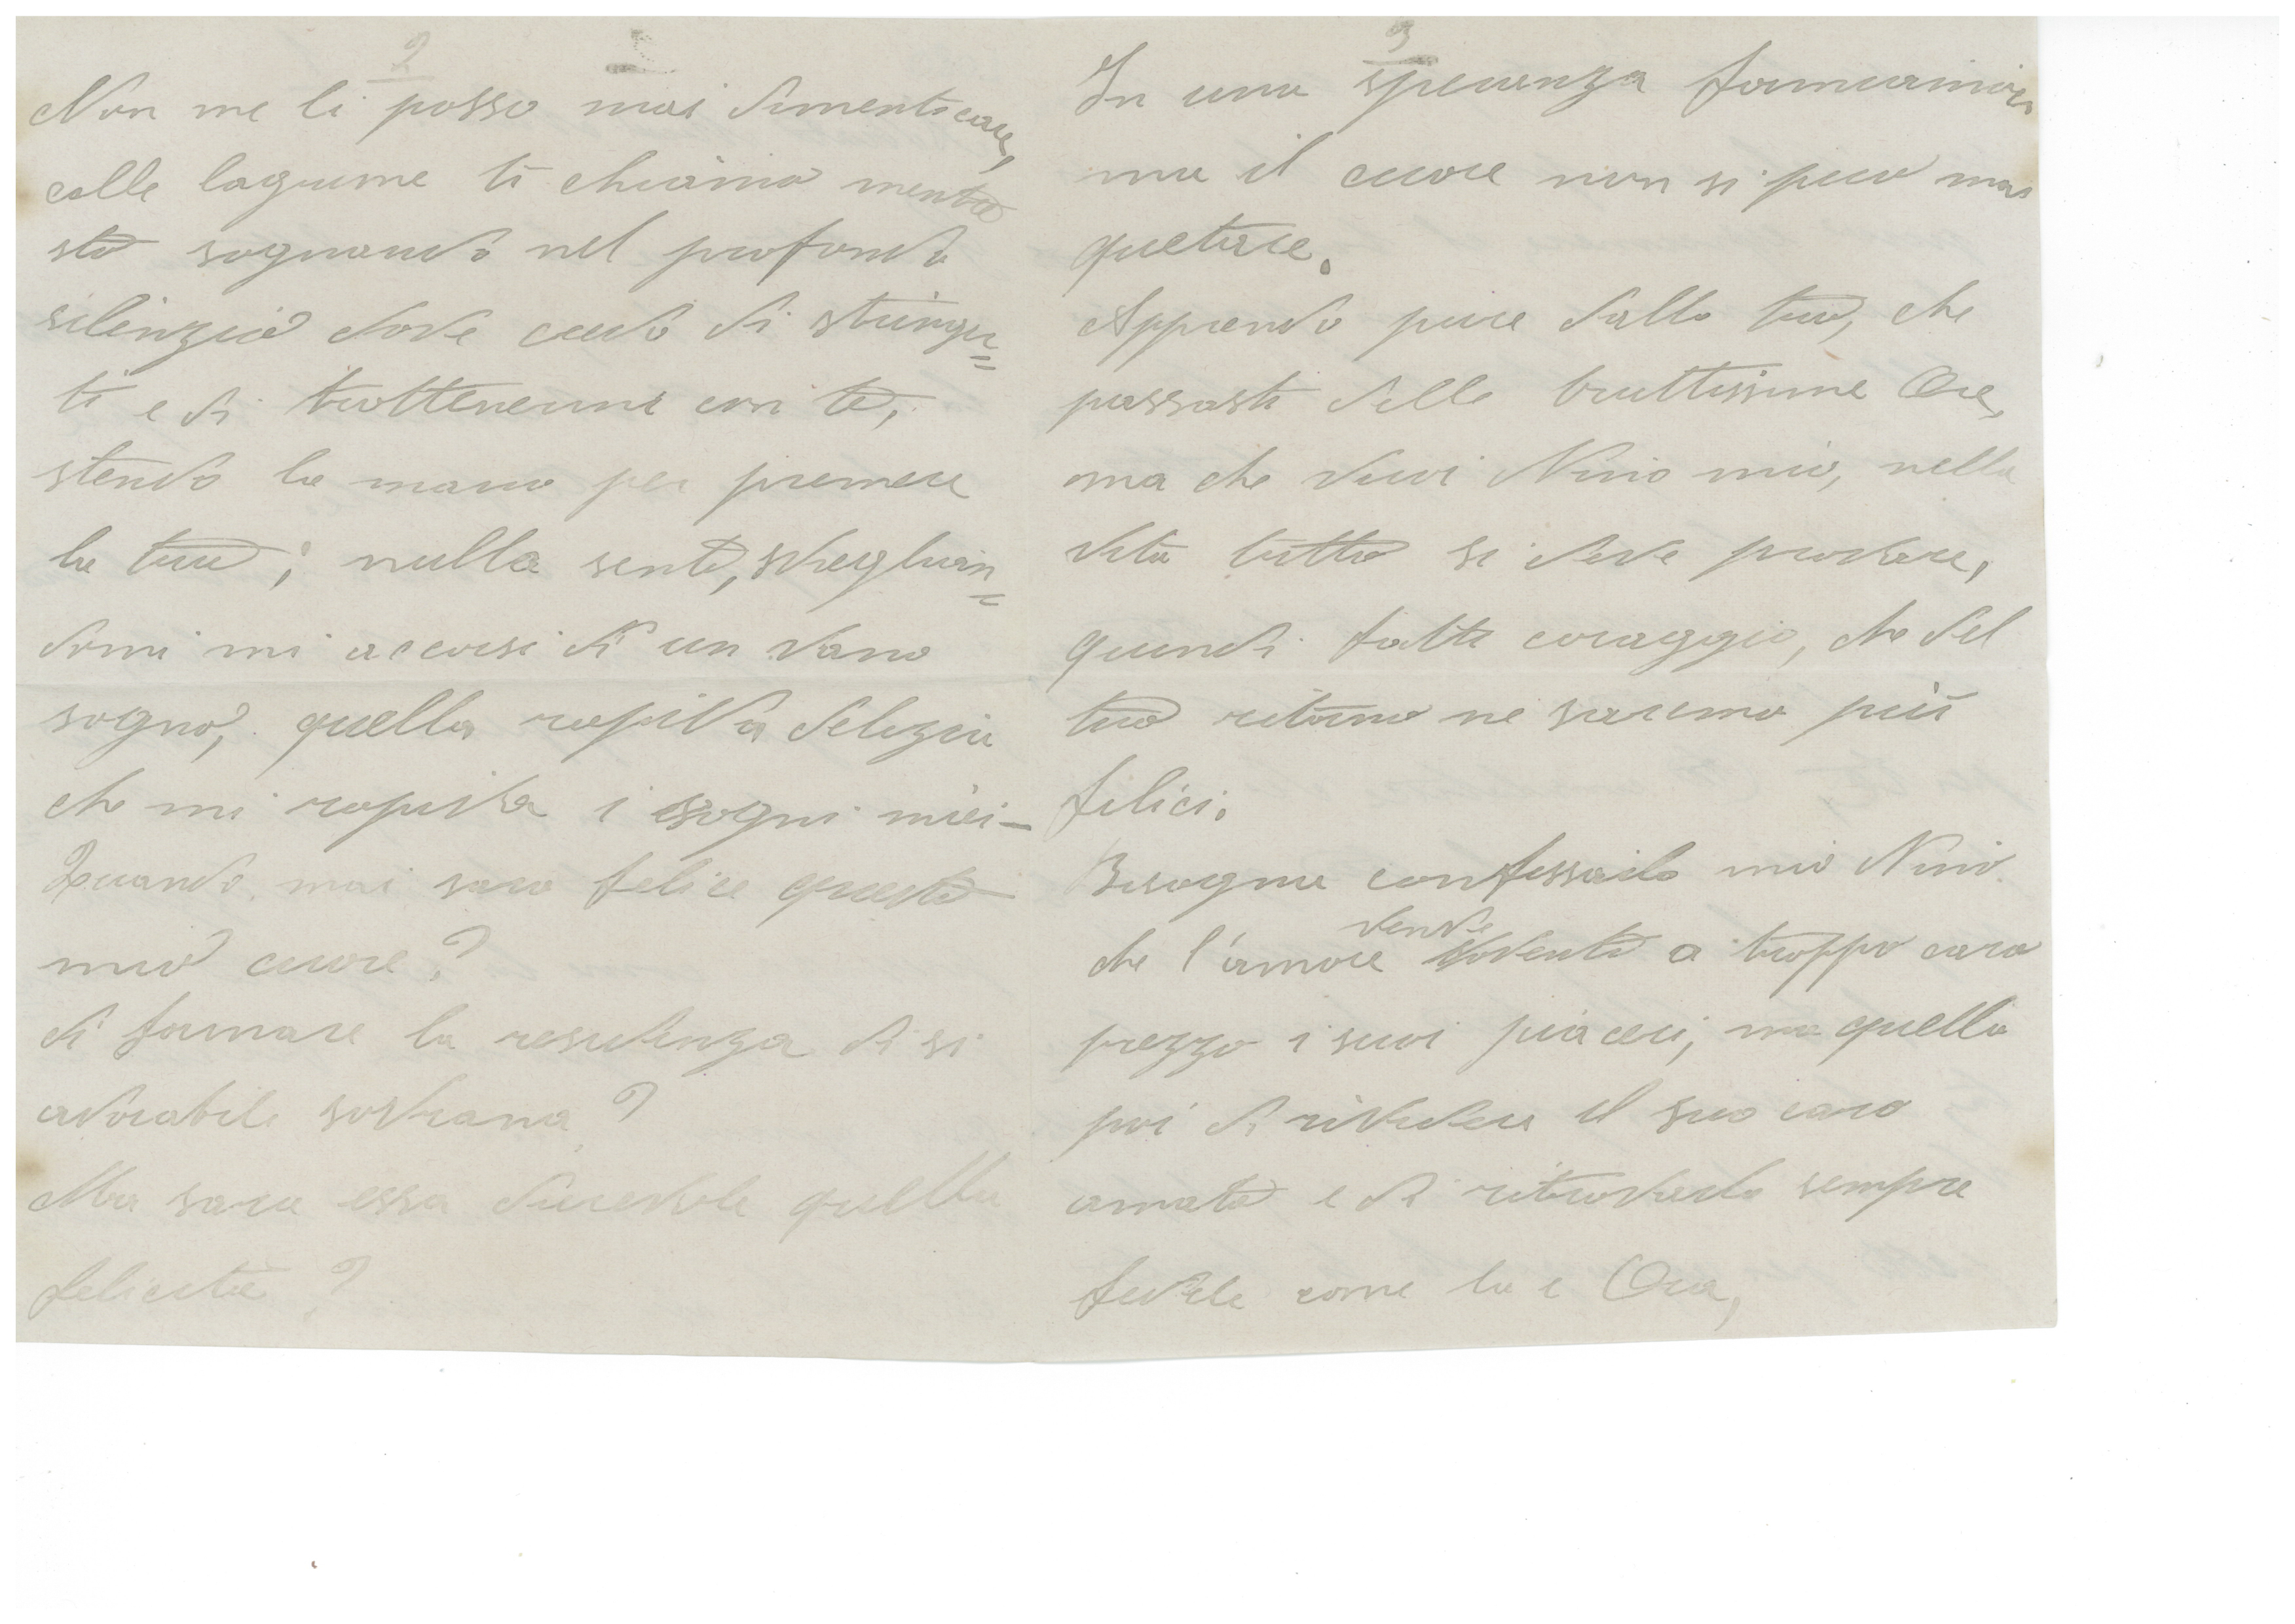 2
Non me li posso mai dimenticare,
colle lagrime ti chiamo mentre
sto sognando nel profondo
silenzio dove credo di stringer=
ti e di trattenermi con te,
stendo la mano per premere
la tua; nulla sento, sveglian=
domi mi accorsi di un vano
sogno, quella rapida delizia
che mi rapiva i sogni miei-
Quando mai sara felice questo
mio cuore?
di formare la residenza di si
adorabile sovrana?
Ma sara essa durevole quella
felicità?
3
In una speranza
ma il cuore non si puo mai
quetare.
Apprendo pure dalla tua, che
passasti delle bruttissime Ore,
ma che vuoi Nino mio, nella
vita tutto si deve provare,
quindi fatti coraggio, che del
tuo ritorno ne saremo più
felici.
Bisogna confessarlo mio Nino
vende
che l'amore sovente a troppo caro
prezzo i suoi piaceri, ma quello
poi di rivedere il suo caro
amato e di ritrovarlo sempre
fedele come lo e Ora,